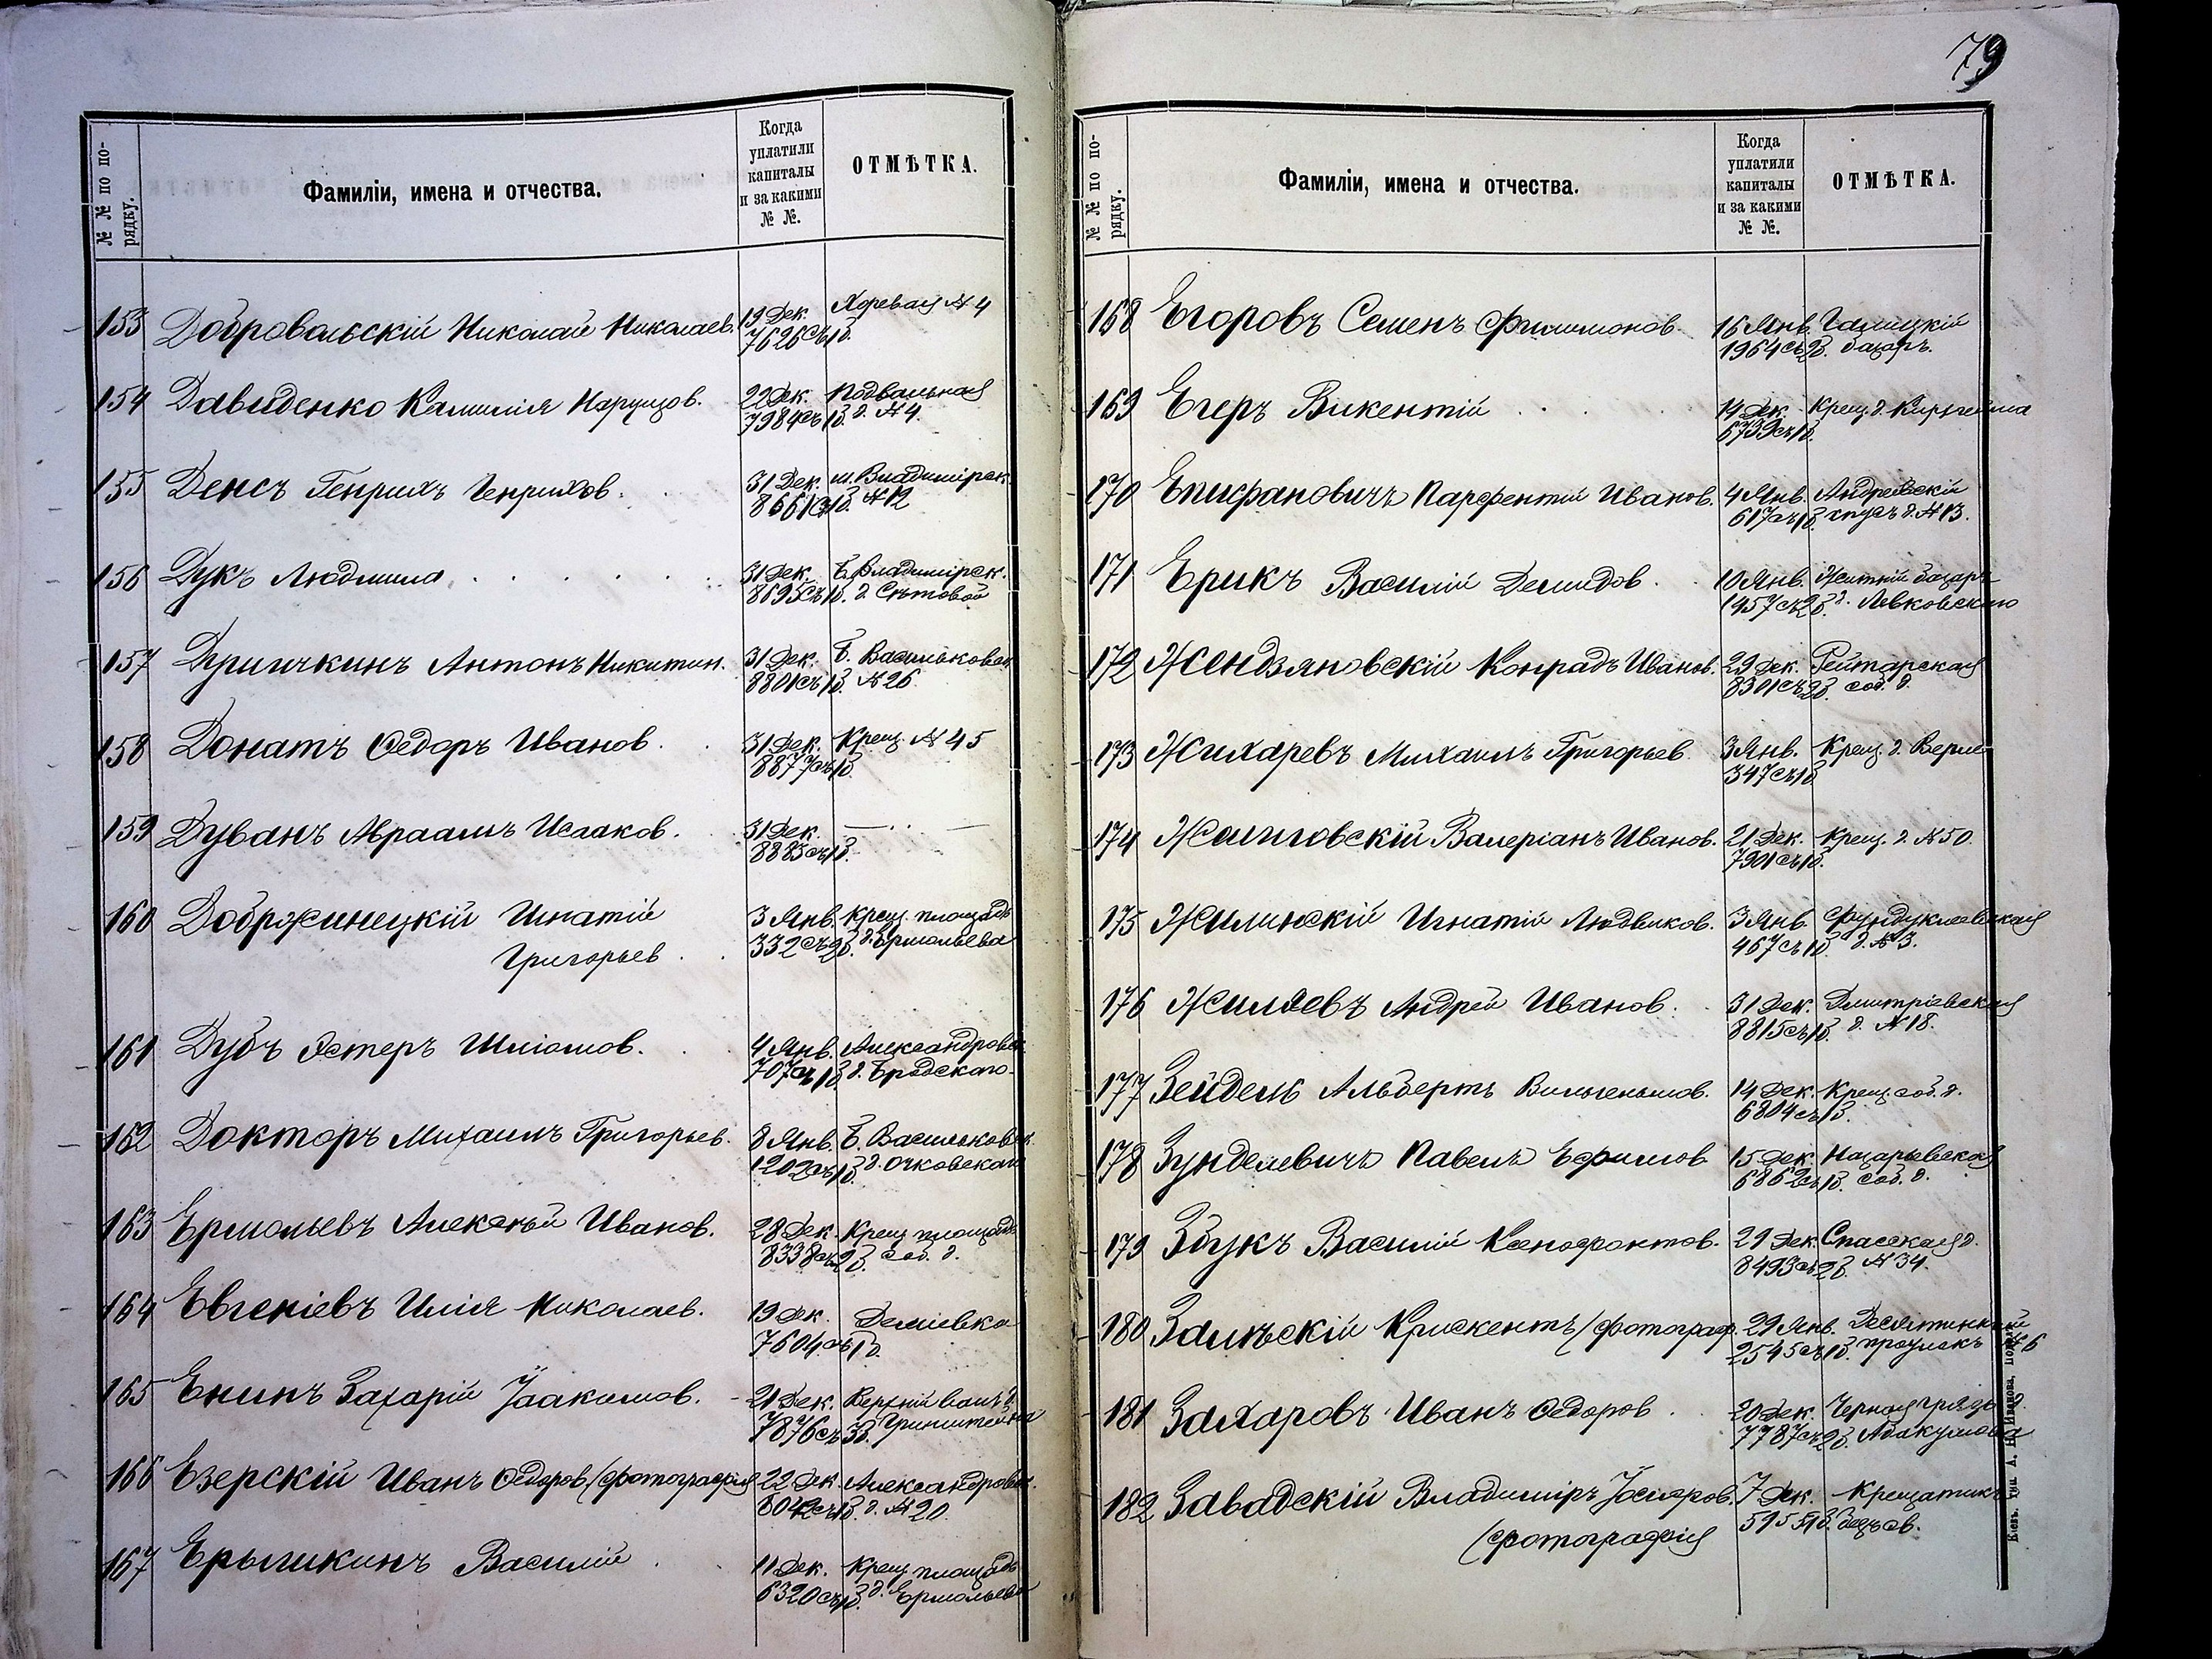 79
№ № по по-
рядку.
Фамиліи, имена и отчества.
Когда
уплатили
капиталы
и за какими
№ №.
ОТМѢТКА.
153 Добровольскій Николай Николаев. 19 Дек. Хоревая № 4
7626 съ 1 д.
154 Давиденко Камилія 22 Дек. Подвальная
7984 съ 1 д. д. № 4.
155 Денсъ Генрихъ Генрихов. 31 Дек. м. Владимірск.
8661 съ 1 д. № 12
156 Дукъ Людмила 31 Дек. Б. Владимірск.
8695 съ 1 д. д. Сѣтовой
157 Антонъ Никитин. 31 Дек. Б. Васильковск.
8801 съ 1 д. № 26
158 Донатъ Ѳедоръ Иванов. 31 Дек. Крещ. № 45
8877 съ 1 д.
159 Дуванъ Авраамъ Исааков. 31 Дек. — —
8883 съ 1 д.
160 Доброжинецкій Игнатій 3 Янв. Крещ. площадь
332 съ 2 д. д. Ермольева
Григорьев
161 Дубъ Эстеръ Шліомов. 4 Янв. Александровск.
707 съ 1 д. д. Бродскаго
162 Докторъ Михаилъ Григорьев. 8 Янв. Б. Васильковск.
1202 съ 1 д. д. Очковской
163 Ермольевъ Алексѣй Иванов. 28 Дек. Крещ. площадь
8338 съ 2 д. соб. д.
164 Евгеніевъ Илія Николаев. 19 Дек. Деміевка
7604 съ 1 д.
165 Енинъ Захарій Іоакимов. 21 Дек. Верхній валъ д.
7876 съ 3 д. Гринштейна
166 Езерскій Иванъ Ѳедоров. (фотографія 22 Дек. Александровск.
8042 съ 1 д. д. № 20
167 Ерышкинъ Василій 11 Дек. Крещ. площадь
6320 съ 1 д. д. Ермольева
№ № по по-
рядку.
Фамиліи, имена и отчества.
Когда
уплатили
капиталы
и за какими
№ №.
ОТМѢТКА.
168 Егоровъ Семенъ Филимонов. 16 Янв. Галицкій
1964 съ 2 д. базаръ.
169 Егеръ Викентій 14 Дек. Крещ. д. Кирхгейма
6739 съ 1 д.
170 Епифановичъ Парфентий Иванов. 4 Янв. Андреевскій
617 съ 1 д. спускъ д. № 13.
171 Ерикъ Василій Демидов. 10 Янв. Житній базаръ
1457 съ 2 д. д. Левковскаго
172 Жендзяновскій Конрадъ Иванов. 29 Дек. Рейтарская
8301 съ 2 д. соб. д.
173 Жихаревъ Михаилъ Григорьев 3 Янв. Крещ. д. Верле
347 съ 1 д.
174 Валеріанъ Иванов. 21 Дек. Крещ. д. № 50.
7901 съ 1 д.
175 Жилинскій Игнатій Людвиков. 3 Янв. Фундуклеевская
467 съ 1 д. д. № 3.
176 Жиляевъ Андрей Иванов. 31 Дек. Дмитріевская
8815 съ 1 д. д. № 18.
177 Зейдель Альбертъ Вильгельмов. 14 Дек. Крещ. соб. д.
6804 съ 1 д.
178 Зунделевичъ Павелъ Ефимов 15 Дек. Назарьевская
6862 съ 1 д. соб. д.
179 Збукъ Василій Ксенофонтов. 29 Дек. Спасская д.
8493 съ 2 д. № 34.
180 Залѣскій Крискентъ (фотограф. 29 Янв. Десятинный
2545 съ 1 д. проулокъ № 6
181 Захаровъ Иванъ Ѳедоров 20 Дек. Черная грязь д.
7787 съ 2 д. Абакумова
182 Завадскій Владиміръ Іосифов. 7 Дек. Крещатикъ
5155 1 д.
(фотографія